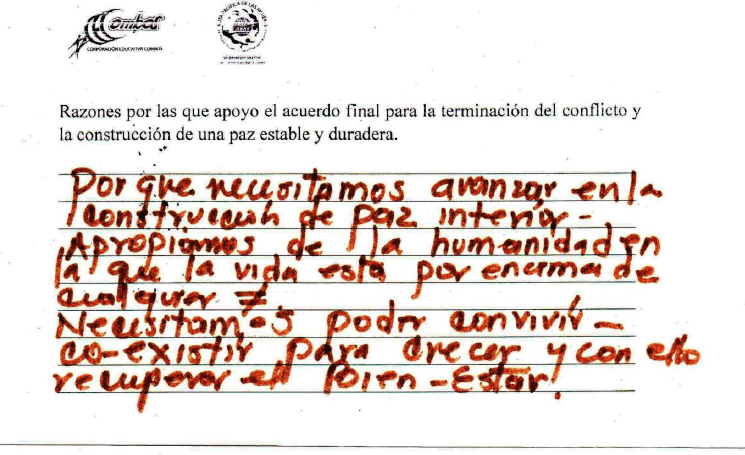 Combos
CORPORACIÓN EDUCATIVA COMBOS
Razones por las que apoyo el acuerdo final para la terminación del conflicto y
la construcción de una paz estable y duradera.
Por que necesitamos avanzar en la
construcción de paz interior -
Apropiarnos de la humanidad en
la que la vida está por encima de
cualquier ≠
Necesitamos poder convivir -
co-existir para crecer y con ello
recuperar el bien-Estar!